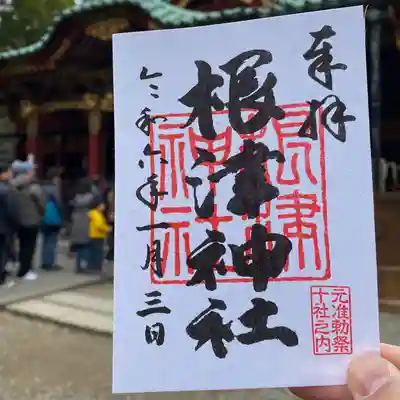 奉拝
根津神社
令和六年一月三日
根津神社
元准勅祭
十社之内